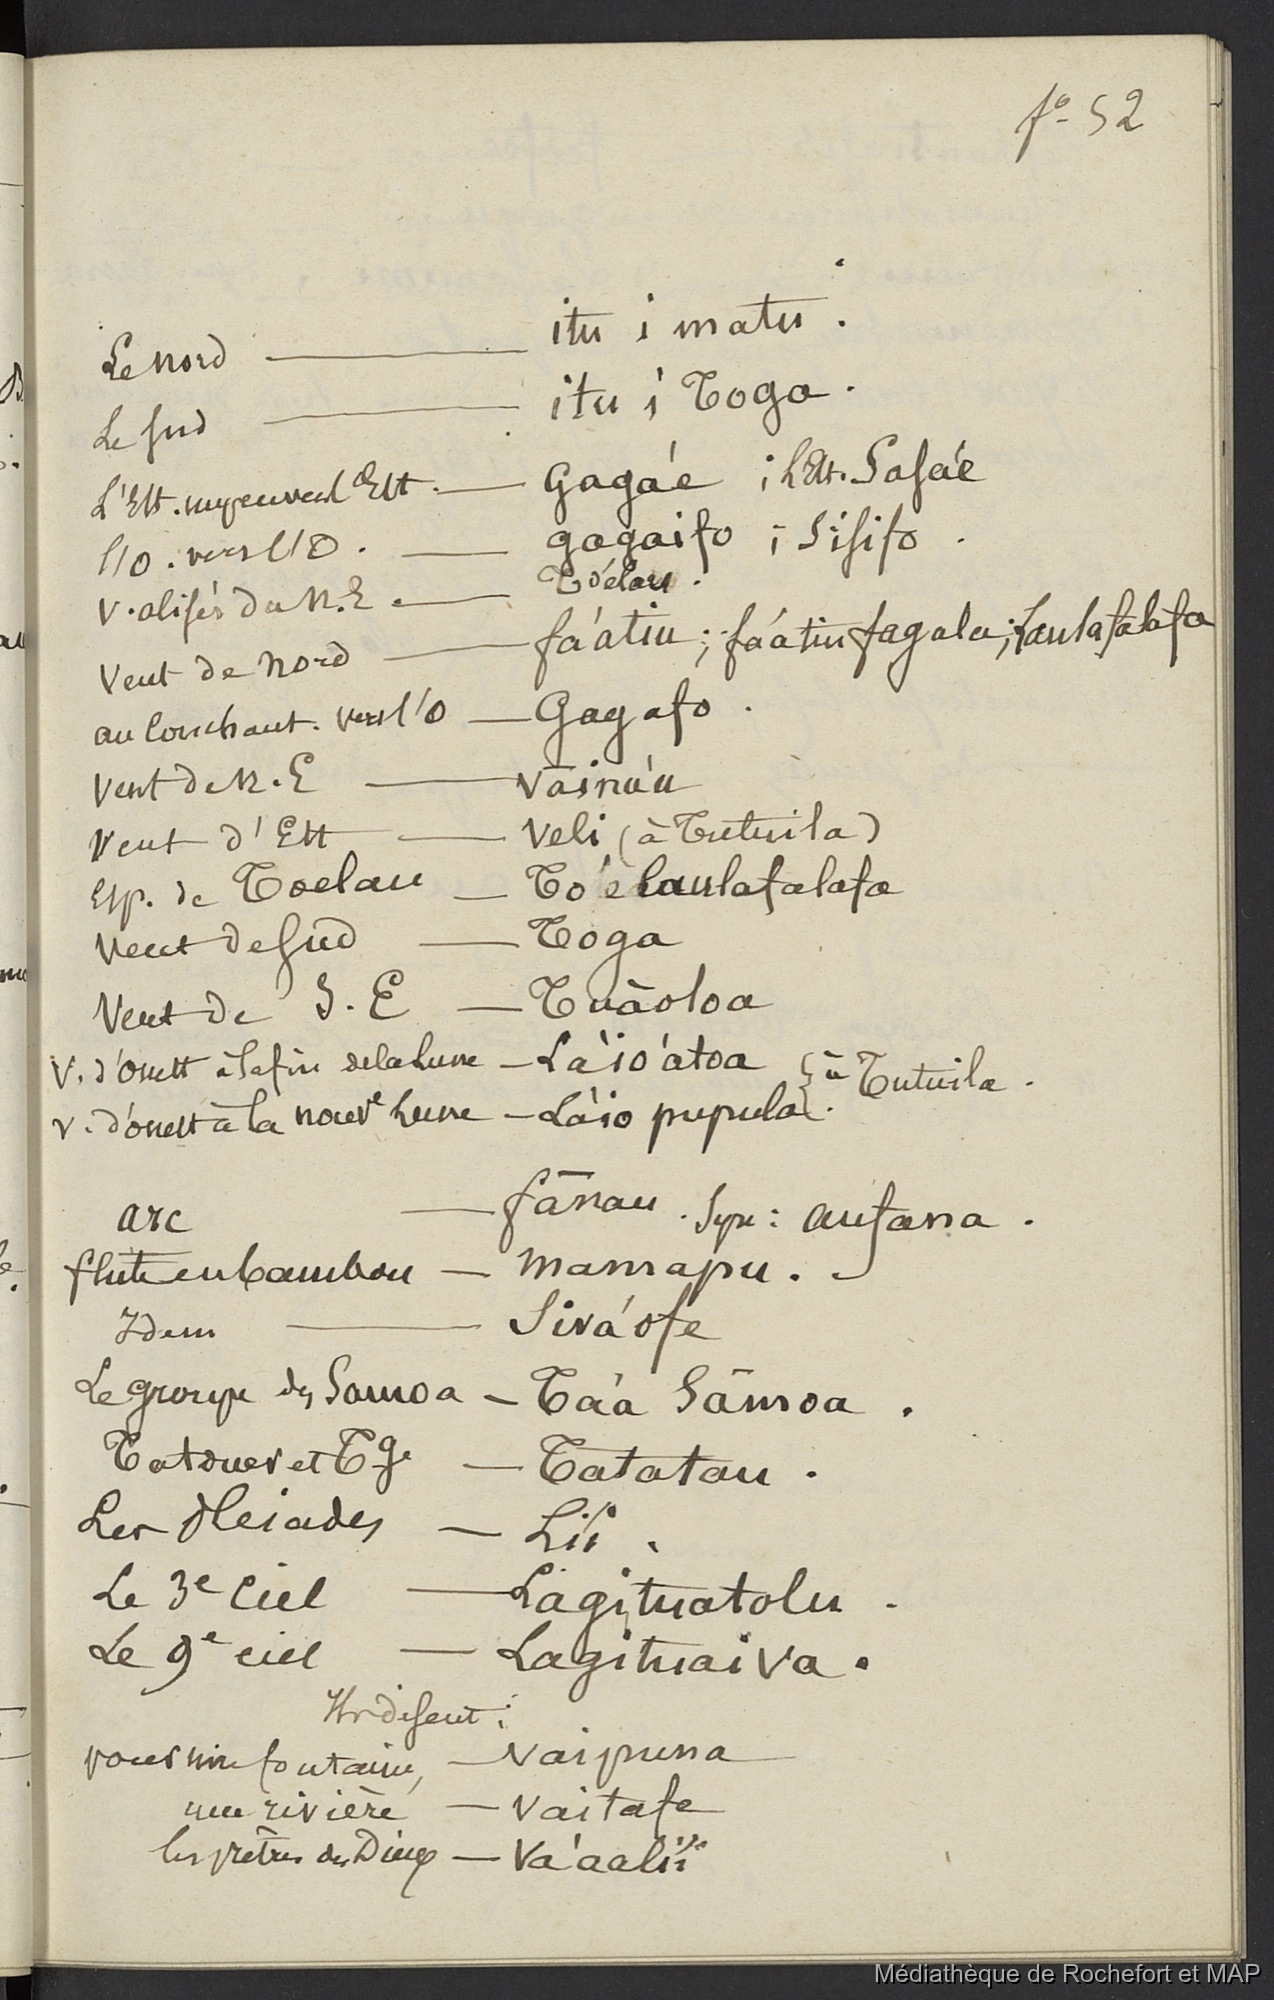 fo 52
Le nord — itu i matu.
Le sud — itu i Toga.
L'Est. un peu vers l'Est. — Gaga'e ; L'Est. Sasa'e
l'O. vers l'O. — gagaifo ; Sisifo.
V. alisés du N.E. — To'elau.
Vent de Nord — fa'atiu ; fa'atiu fagala ; Laulafalafa
au couchant. vers l'O — Gagafo.
Vent de N.E — Vāinu'u
Vent d'Est — Veli (à Tutuila)
Esp. de Toelau — To'elaulafalafa
Vent de Sud — Toga
Vent de S.E — Tuāoloa
V. d'Ouest à la fin de la Lune — La'io'atoa } à Tutuila.
V. d'Ouest à la nouve Lune — La'io pupula.
arc — fānau. Syn: aufana.
flute en bambou — mamapu.
Idem — Siva'ofe
Le groupe des Samoa — Ta'a Sāmoa.
Tatouer et Tge — Tatatau.
Les Pleiades — Li'i.
Le 3e Ciel — Lagituatolu.
Le 9e ciel — Lagituaiva.
Ils disent :
pour une fontaine, — Vaipuna
une rivière — Vaitafe
les prêtres des Dieux — Va'aali'i